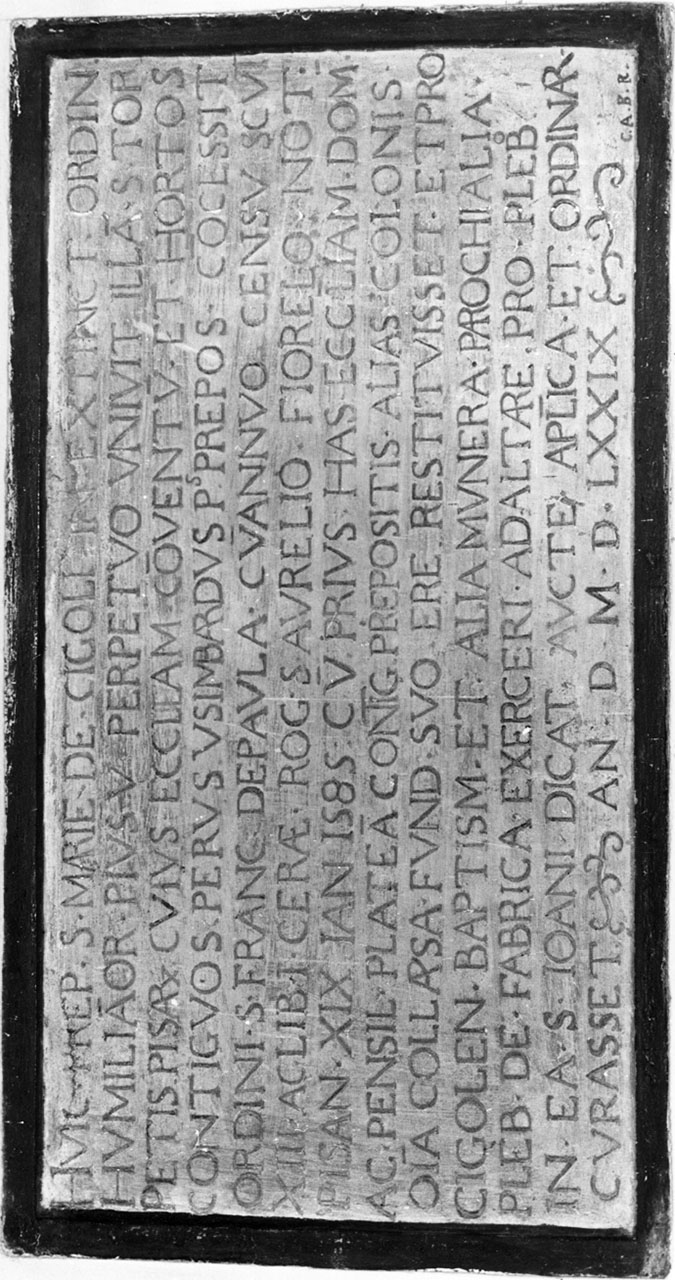 HVIC PREP. S. MARIE. DE. CIGOLI EXTINCT. ORDIN.
HVMILIĀOR. PIVS. V. PERPETVO VNIVIT. ILLĀ. S. TOR
PETIS. PISAR CVIVS ECCLEAM CŌVENTV̄. ET. HORTOS
CONTIGVOS. PERVS VSIMBARDVS Pˢ PREPOS. COCESSIT
ORDINI. S. FRANC. DEPAVLA. CVANNVO CENSV SCVI
XIII. AC LIB. I. CERÆ. ROG. S. AVRELIO. FIORELO. NOT.
PISAN. XIX. IAN. 1585. CV̄ PRIVS HAS ECCLIAM. DOM.
AC. PENSIL. PLATEĀ CONTIG. PREPOSITIS. ALIAS. COLONIS.
OĪA COLLARSA. FVND. SVO ERE RESTITVISSET. ET PRO
CIGOLEN. BAPTISM. ET. ALIA MVNERA. PAROCHIALIA.
PLEB. DE. FABRICA. EXERCERI. AD ALTARE. PRO. PLEB̊.
IN. EA. S. IOANI. DICAT. AVCTE. APL̄ICA. ET. ORDINAR.
CVRASSET. AN. D. M. D. LXXIX
C. A. B. R.